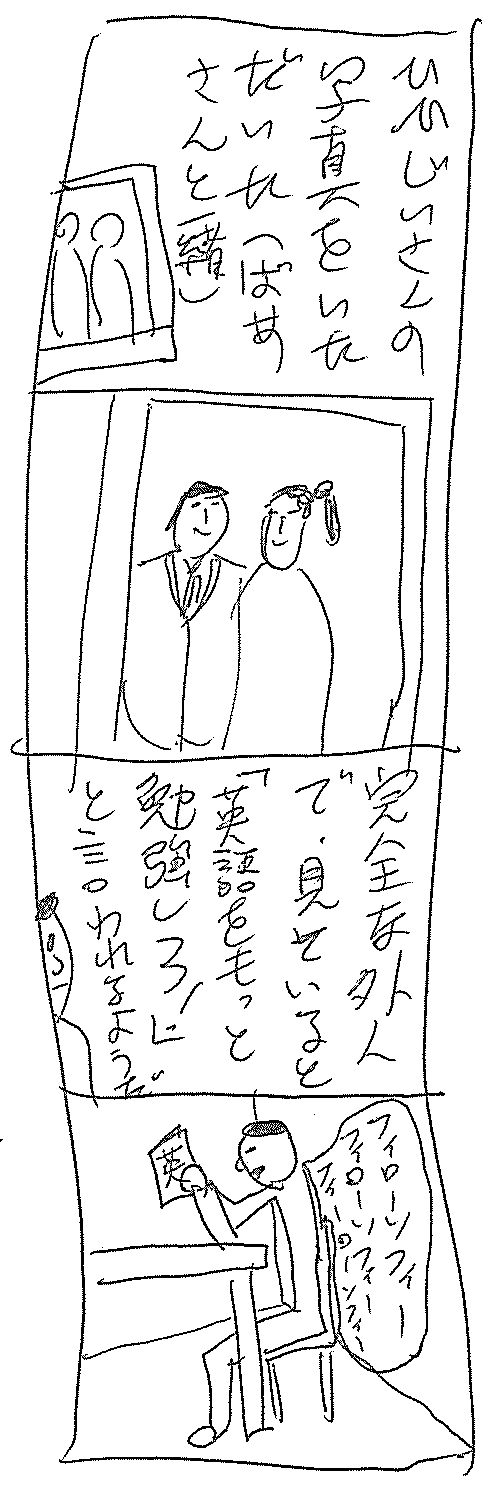 ひいじいさんの
写真をいた
だいた(ばあ
さんと一緒)
完全な外人
で、見ていると
「英語をもっと
勉強しろ!に
と言われるようだ
英
フィローソフィー
フィローソフィー